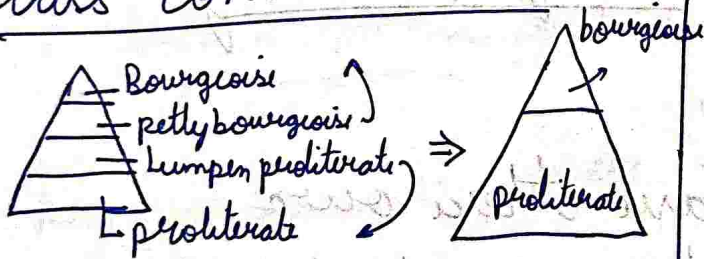 Bourgeoise
petty bourgeoise
Lumpen proliterate
⇒
proliterate
bourgeoise
proliterate